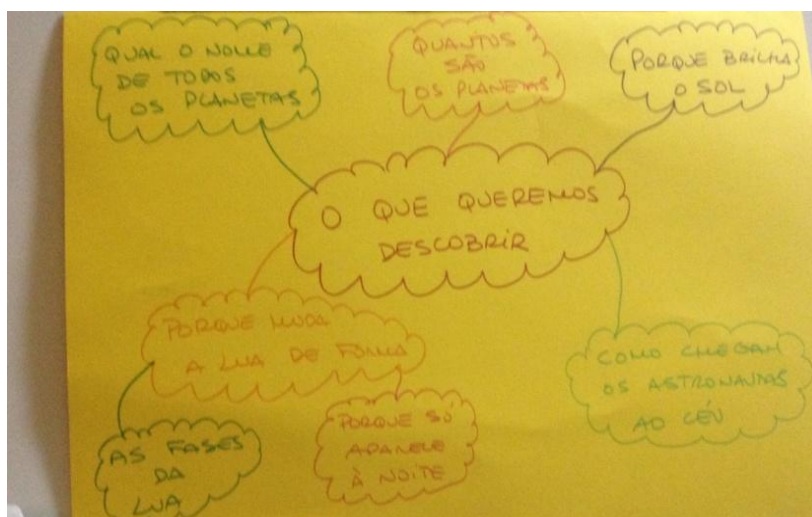 QUAL O NOME
DE TODOS
OS PLANETAS
QUANTOS
SÃO
OS PLANETAS
PORQUE BRILHA
O SOL
O QUE QUEREMOS
DESCOBRIR
PORQUE MUDA
A LUA DE FORMA
COMO CHEGAM
OS ASTRONAUTAS
AO CÉU
AS FASES
DA
LUA
PORQUE SÓ
APARECE
À NOITE